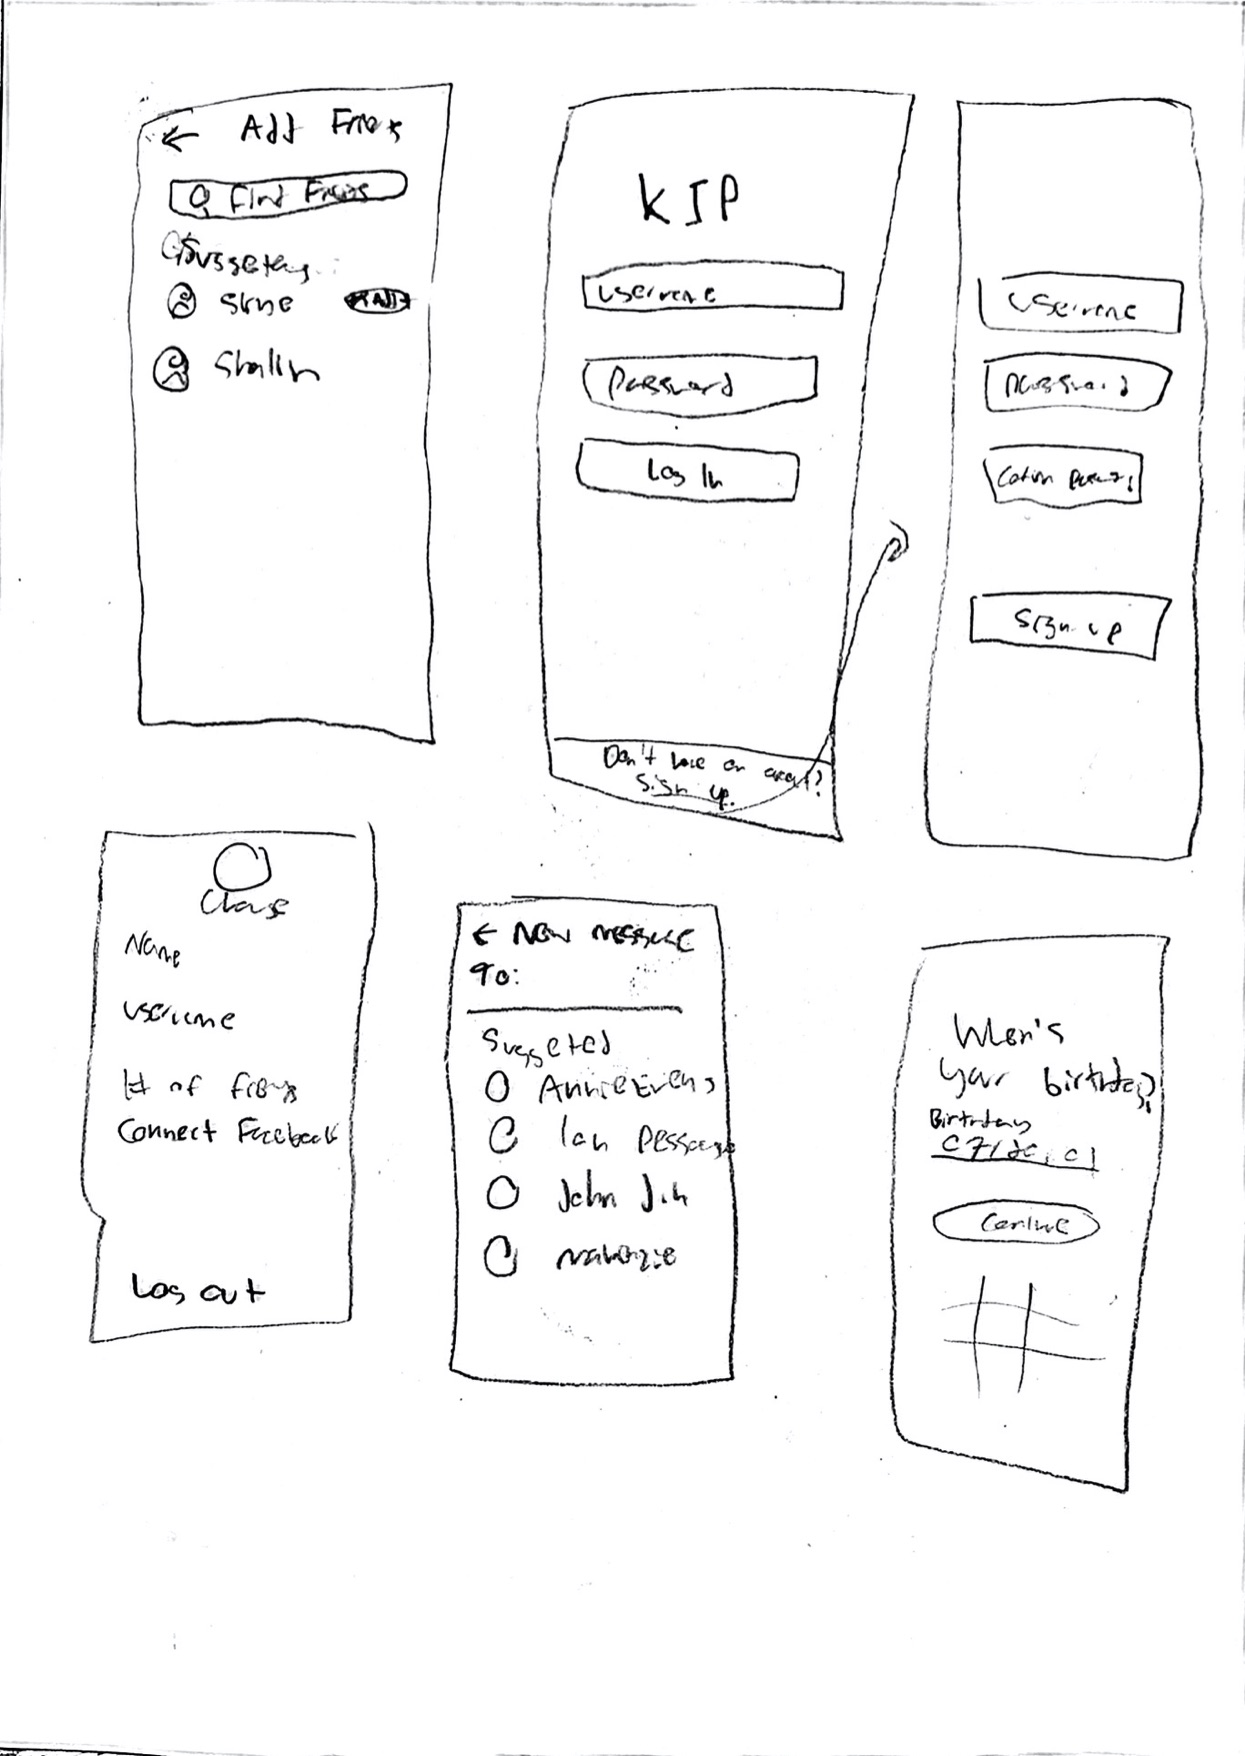 ← Add Friends
Find Friends
Suggested
Add
KIP
username
password
Log In
Don't have an account?
Sign up.
username
password
Confirm password
Sign up
Change
Name
username
# of friends
Connect Facebook
Log out
← NEW MESSAGE
To:
Suggeted
Annie Evens
Ian
John Jin
When's
your birthday?
Birthday
Continue